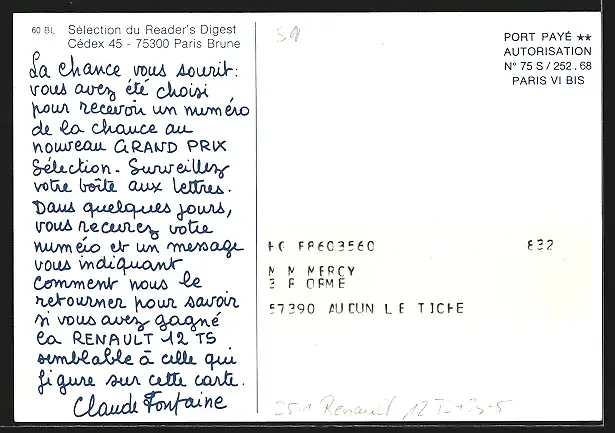 60 BL Sélection du Reader's Digest
Cédex 45 - 75300 Paris Brune
La chance vous sourit:
vous avez été choisi
pour recevoir un numéro
de la chance au
nouveau GRAND PRIX
Sélection. Surveillez
votre boîte aux lettres.
Dans quelques jours,
vous recevrez votre
numéro et un message
vous indiquant
comment nous le
retourner pour savoir
si vous avez gagné
la RENAULT 12 TS
semblable à celle qui
figure sur cette carte.
Claude Fontaine
PORT PAYÉ ★★
AUTORISATION
N° 75 S / 252.68
PARIS VI BIS
F8603560 832
M M MERCY
3 R ORME
57390 AUDUN LE TICHE
Renault 12 TS